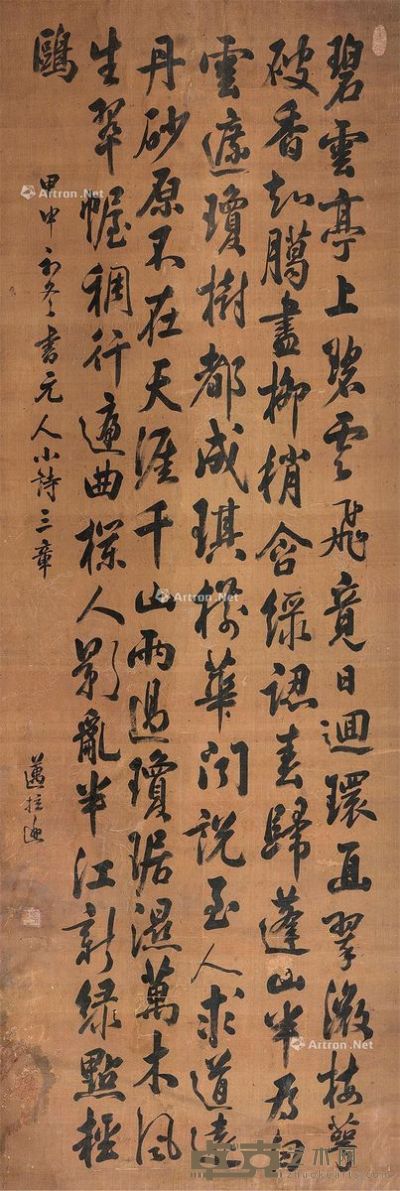 碧雲亭上碧雲飛竟日迴環面翠微梅萼
破香知臘盡柳梢含綠認春歸蓬山半爲白
雲遮瓊樹都成琪樹華聞說至人求道遠
丹砂原不在天涯千山雨過瓊琚濕萬木風
生翠幄稠行遍曲欄人影亂半江新綠點輕
鷗
甲申初冬書元人小詩三章
邁柱
Artron.Net
Artron.Net
Artron.Net
Artron.Net
Artron.Net